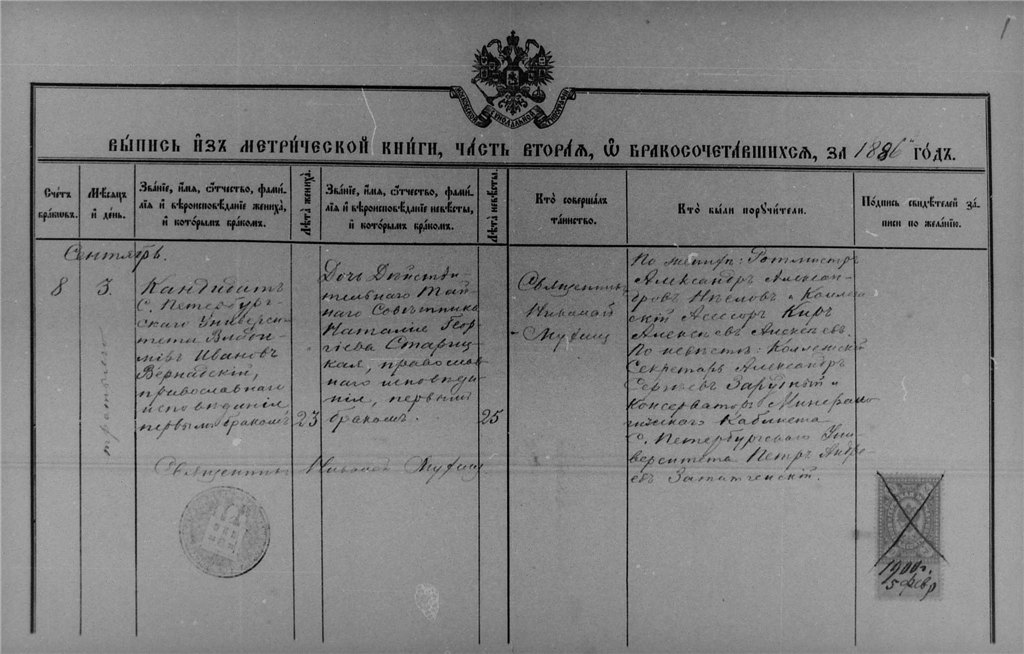 1
МОСКОВСКОЙ СѴНОДАЛЬНОЙ ТИПОГРАФІИ
ВЫ́ПИСЬ И҆ЗЪ МЕТРИ́ЧЕСКОЙ КНИ́ГИ, ЧА́СТЬ ВТОРА́Я, Ѡ҆ БРАКОСОЧЕТА́ВШИХСЯ, ЗА 1886 ГО́ДЪ.
Сче́тъ бра́ковъ.
Мѣ́сяцъ и҆ де́нь.
Зва́нїе, и҆́мя, ѻ҆́тчество, фами́лїя и҆ вѣроисповѣ́данїе жениха̀, и҆ кото́рымъ бра́комъ.
Лѣ́та жениха̀.
Зва́нїе, и҆́мя, ѻ҆́тчество, фами́лїя и҆ вѣроисповѣ́данїе невѣ́сты, и҆ кото́рымъ бра́комъ.
Лѣ́та невѣ́сты.
Кто̀ соверша́лъ та́инство.
Кто̀ бы́ли поручи́тели.
По́дпись свидѣ́телей за́писи по жела́нїю.
Сентябрь.
8
3.
третьяго
Кандидатъ
С. Петербург-
скаго Универси-
тета Влади-
міръ Ивановъ
Вернадскій,
православнаго
исповѣданія
первымъ бракомъ
23
Дочь Дѣйстви-
тельнаго Тай-
наго Совѣтника
Наталія Геор-
гіева Стариц-
кая, православ-
наго исповѣда-
нія, первымъ
бракомъ.
25
Священникъ
Николай
По женихѣ: Ротмистръ
Александръ Алексан-
дровъ Нѣеловъ и Коллеж-
скій Асесоръ Киръ
Алексѣевъ Алексѣевъ.
По невѣстѣ: Коллежскій
Секретарь Александръ
Сергѣевъ Зарудный и
Консерваторъ Минерало-
гическаго Кабинета
С. Петербургскаго Уни-
верситета Петръ Андре-
евъ Земятченскій.
Священникъ Николай
1900 г.
5 февр